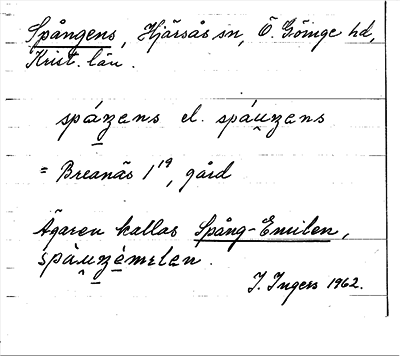 Spångens, Hjärsås sn, Ö. Göinge hd,
Krist. län.
spáʒens el. spáuʒens
= Breanäs 1¹⁹, gård
Ägaren kallas Spång-Emilen,
spàuʒémɛlen.
I. Ingers 1962.